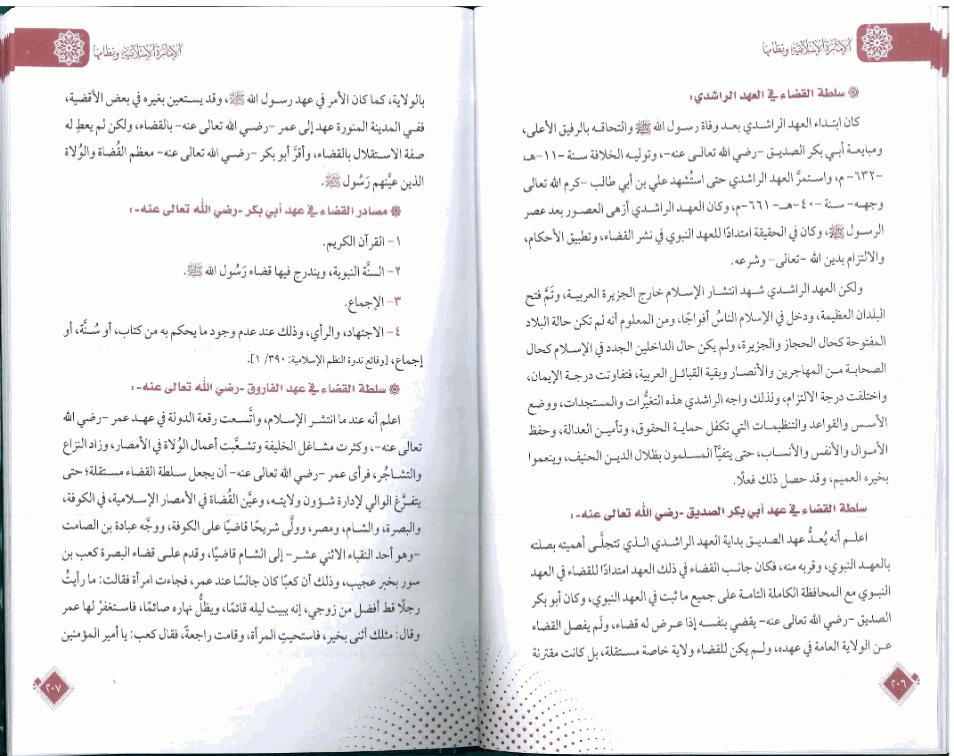 الإمارة الإسلامية ونظامها
سلطة القضاء في العهد الراشدي:
كان ابتداء العهد الراشدي بعد وفاة رسول الله ﷺ والتحاقه بالرفيق الأعلى،
ومبايعة أبي بكر الصديق -رضي الله تعالى عنه-، وتوليه الخلافة سنة -١١- هـ
-٦٣٢- م، واستمرَّ العهد الراشدي حتى استُشهد علي بن أبي طالب -كرم الله تعالى
وجهه- سنة -٤٠- هـ -٦٦١- م، وكان العهد الراشدي أزهى العصور بعد عصر
الرسول ﷺ، وكان في الحقيقة امتدادًا للعهد النبوي في نشر القضاء، وتطبيق الأحكام،
والالتزام بدين الله -تعالى- وشرعه.
ولكن العهد الراشدي شهد انتشار الإسلام خارج الجزيرة العربية، وتَمَّ فتح
البلدان العظيمة، ودخل في الإسلام الناسُ أفواجًا، ومن المعلوم أنه لم تكن حالة البلاد
المفتوحة كحال الحجاز والجزيرة، ولم يكن حال الداخلين الجدد في الإسلام كحال
الصحابة من المهاجرين والأنصار وبقية القبائل العربية، فتفاوتت درجة الإيمان،
واختلفت درجة الالتزام، ولذلك واجه الراشدي هذه التغيُّرات والمستجدات، ووضع
الأسس والقواعد والتنظيمات التي تكفل حماية الحقوق، وتأمين العدالة، وحفظ
الأموال والأنفس والأنساب، حتى يتفيَّأ المسلمون بظلال الدين الحنيف، وينعموا
بخيره العميم، وقد حصل ذلك فعلًا.
سلطة القضاء في عهد أبي بكر الصديق -رضي الله تعالى عنه-:
اعلم أنه يُعدُّ عهد الصديق بداية العهد الراشدي الذي تتجلَّى أهميته بصلته
بالعهد النبوي، وقربه منه، فكان جانب القضاء في ذلك العهد امتدادًا للقضاء في العهد
النبوي مع المحافظة الكاملة التامة على جميع ما ثبت في العهد النبوي، وكان أبو بكر
الصديق -رضي الله تعالى عنه- يقضي بنفسه إذا عرض له قضاء، ولَم يفصل القضاء
عن الولاية العامة في عهده، ولم يكن للقضاء ولاية خاصة مستقلة، بل كانت مقترنة
٢٠٦
الإمارة الإسلامية ونظامها
بالولاية، كما كان الأمر في عهد رسول الله ﷺ، وقد يستعين بغيره في بعض الأقضية،
ففي المدينة المنورة عهد إلى عمر -رضي الله تعالى عنه- بالقضاء، ولكن لم يعطِ له
صفة الاستقلال بالقضاء، وأقرَّ أبو بكر -رضي الله تعالى عنه- معظم القُضاة والوُلاة
الذين عيَّنهم رَسُول ﷺ.
مصادر القضاء في عهد أبي بكر -رضي الله تعالى عنه-:
١- القرآن الكريم.
٢- السنَّة النبوية، ويندرج فيها قضاء رَسُول الله ﷺ.
٣- الإجماع.
٤- الاجتهاد، والرأي، وذلك عند عدم وجود ما يحكم به من كتاب، أو سُنَّة، أو
إجماع، [وقائع ندوة النظم الإسلامية: ٣٩٠/ ١].
سلطة القضاء في عهد الفاروق -رضي الله تعالى عنه-:
اعلم أنه عند ما انتشر الإسلام، واتَّسعت رقعة الدولة في عهد عمر -رضي الله
تعالى عنه-، وكثرت مشاغل الخليفة وتشعَّبت أعمال الوُلاة في الأمصار، وزاد النزاع
والتشاجُر، فرأى عمر -رضي الله تعالى عنه- أن يجعل سلطة القضاء مستقلة؛ حتى
يتفرَّغ الوالي لإدارة شؤون ولايته، وعيَّن القُضاة في الأمصار الإسلامية، في الكوفة،
والبصرة، والشام، ومصر، وولَّى شريحًا قاضيًا على الكوفة، ووجَّه عبادة بن الصامت
-وهو أحد النقباء الاثني عشر- إلى الشام قاضيًا، وقدم على قضاء البصرة كعب بن
سور بخبر عجيب، وذلك أن كعبًا كان جالسًا عند عمر، فجاءت امرأة فقالت: ما رأيتُ
رجلًا قط أفضل من زوجي، إنه يبيت ليله قائمًا، ويظلُّ نهاره صائمًا، فاستغفرَ لها عمر
وقال: مثلك أثنى بخير، فاستحيتِ المرأة، وقامت راجعةً، فقال كعب: يا أمير المؤمنين
٢٠٧